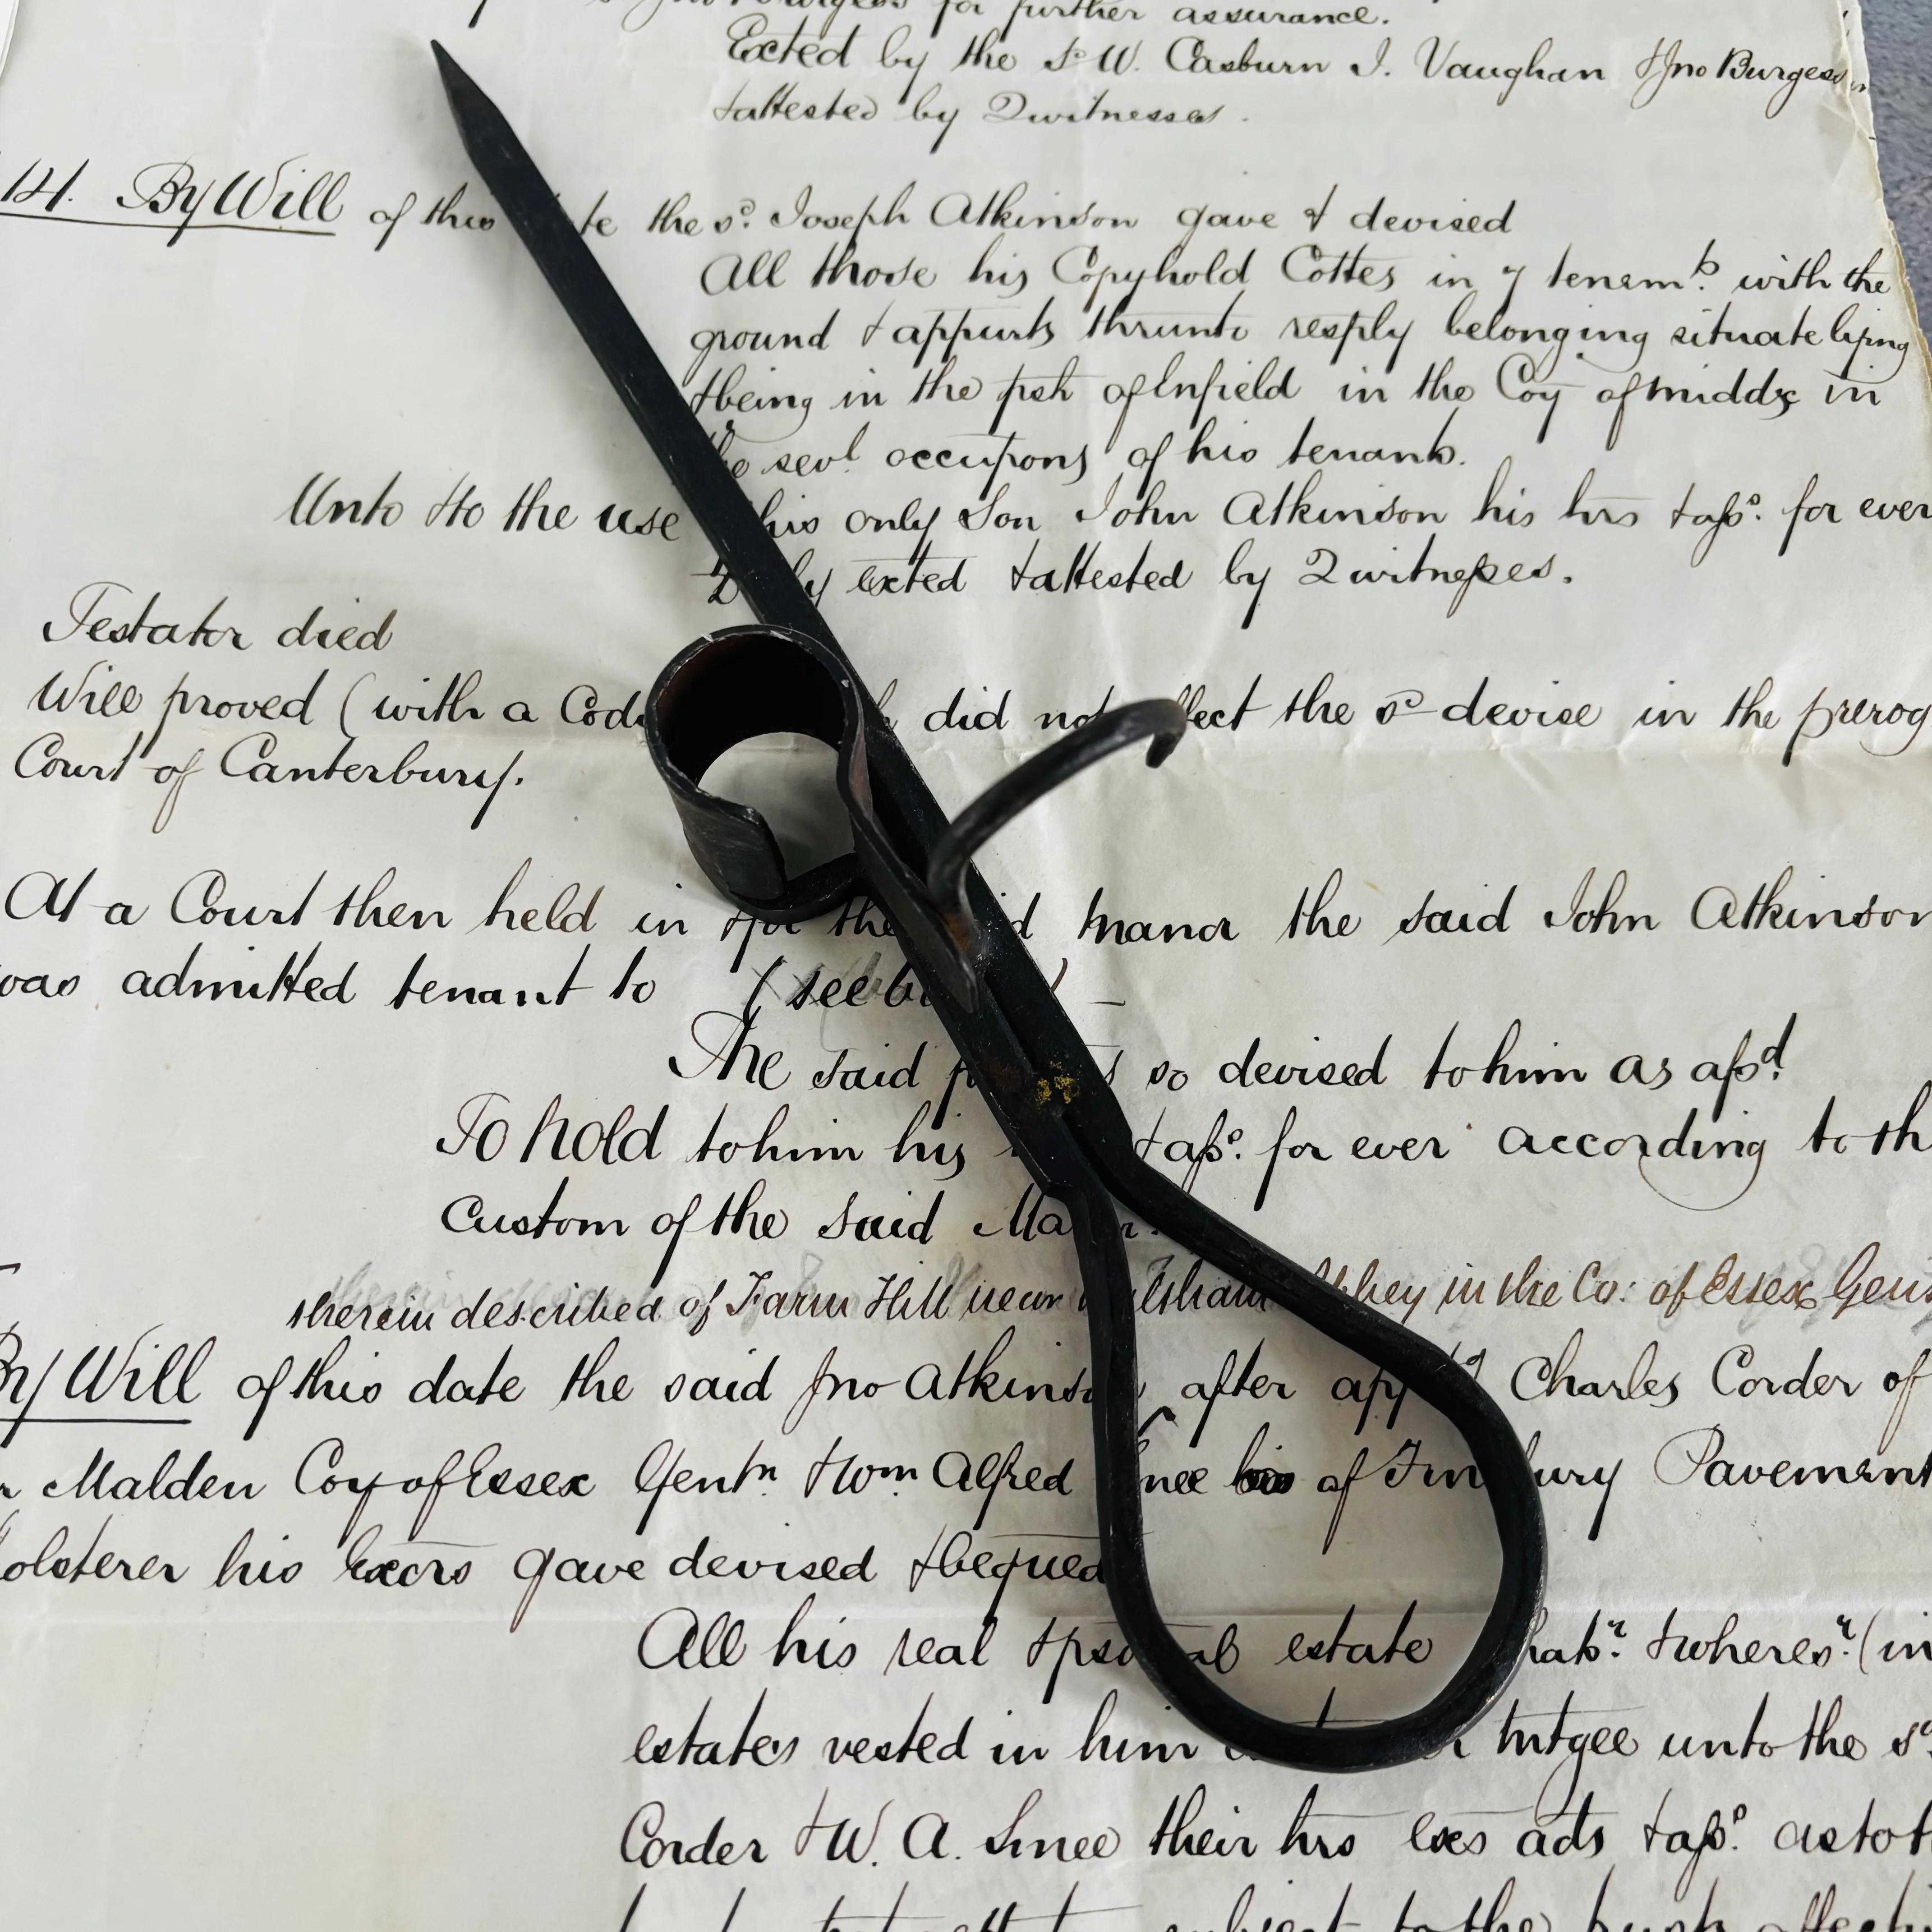 for further assurance.
Exted by the sd W. Casburn I. Vaughan & Jno Burgess
& attested by 2 witnesses.
14. By Will of this te the sd. Joseph Atkinson gave & devised
All those his Copyhold Cottes in 7 tenemts. with the
ground & appurts thrunto resply belonging situate lying
& being in the psh of Enfield in the Coy of Middx in
sevl occupons of his tenants.
Unto & to the use his only Son John Atkinson his hrs & asss. for ever
exted & attested by 2 witnesses.
Testator died
Will proved (with a Cod did not ffect the sd devise in the prerog
Court of Canterbury.
At a Court then held in & for the d Manor the said John Atkinson
was admitted tenant to (see b )
The said p s so devised to him as afsd.
To hold to him his & asss. for ever according to th
Custom of the said Ma r.
therein described of Farm Hill near ltham Abbey in the Co: of Essex Gent
By Will of this date the said Jno Atkinson after app g Charles Corder of
Malden Coy of Essex Gentn. & Wm Alfred nee of Fin bury Pavement
olsterer his Exors gave devised & bequed
All his real & pso al estate hatsr. & wheresr. (in
estates vested in him r mtgee unto the sd
Corder & W. A. Smee their hrs exs ads & asss. as to